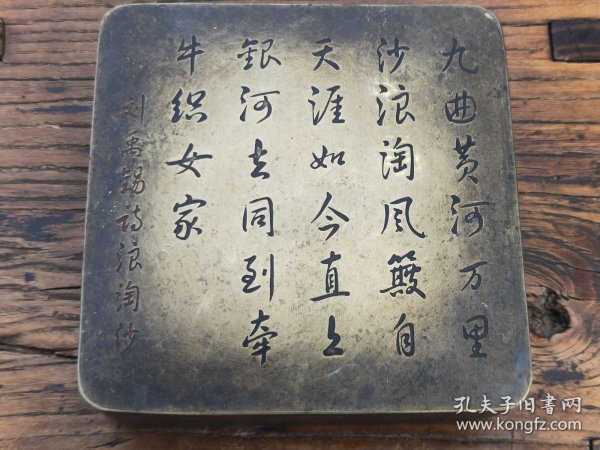 九曲黄河万里
沙浪淘风簸自
天涯如今直上
银河去同到牵
牛织女家
刘禹锡诗浪淘沙
孔夫子旧书网
www.kongfz.com